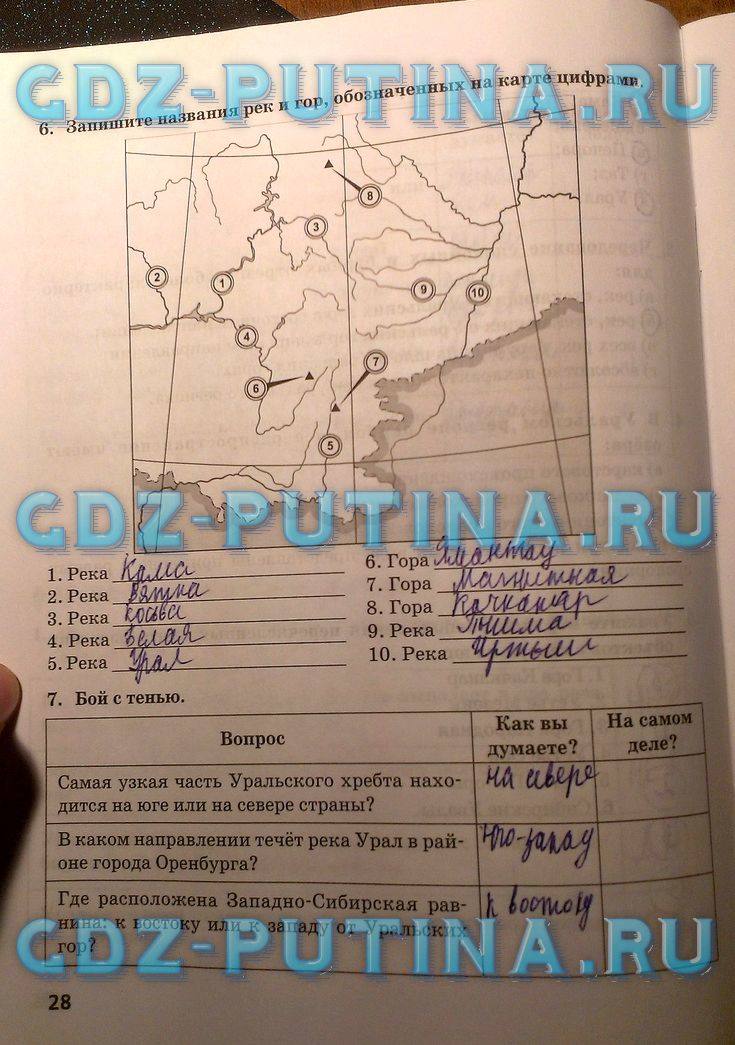 GDZ-PUTINA.RU
6. Запишите названия рек и гор, обозначенных на карте цифрами.
8
3
2
1
9
10
4
7
6
5
GDZ-PUTINA.RU
1. Река Кама
2. Река Вятка
3. Река Косьва
4. Река Белая
5. Река Урал
6. Гора Ямантау
7. Гора Магнитная
8. Гора Качканар
9. Река
10. Река Иртыш
7. Бой с тенью.
Вопрос
Как вы думаете?
На самом деле?
Самая узкая часть Уральского хребта нахо-
дится на юге или на севере страны?
на севере
В каком направлении течёт река Урал в рай-
оне города Оренбурга?
юго-запад
Где расположена Западно-Сибирская рав-
нина: к востоку или к западу от Уральских
гор?
к востоку
GDZ-PUTINA.RU
28